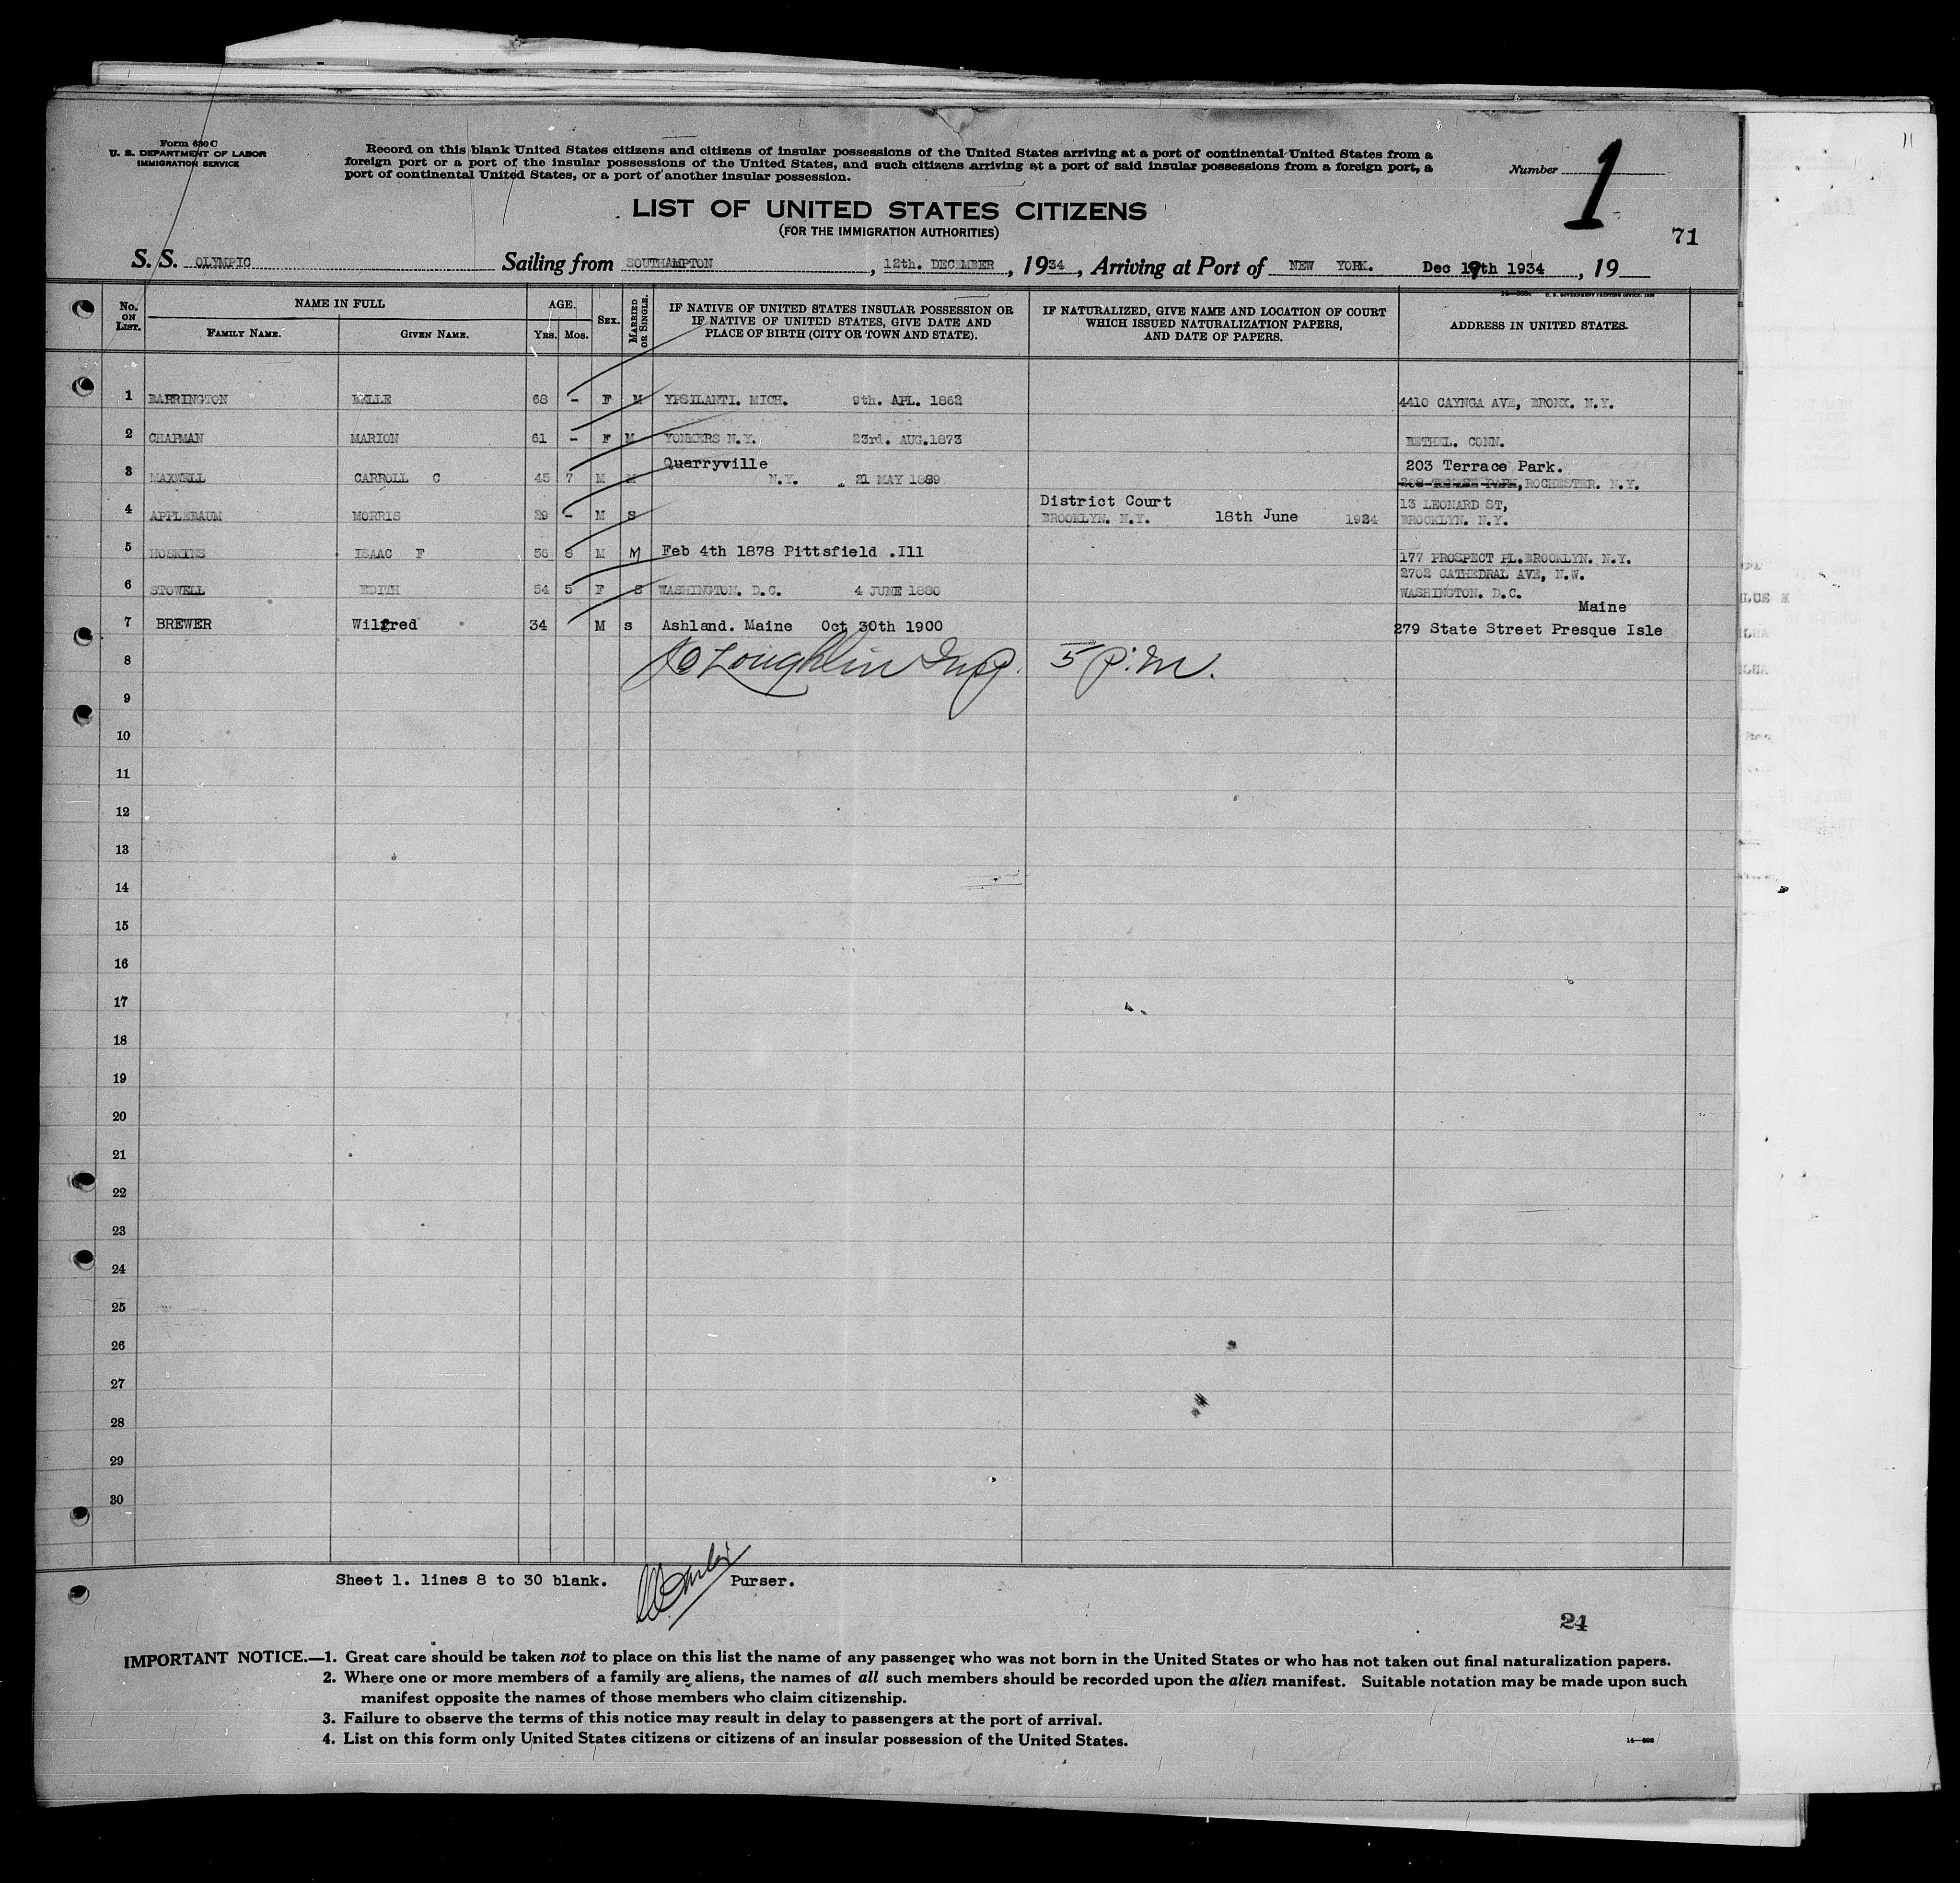 Form 630 C
U. S. DEPARTMENT OF LABOR
IMMIGRATION SERVICE
Record on this blank United States citizens and citizens of insular possessions of the United States arriving at a port of continental United States from a
foreign port or a port of the insular possessions of the United States, and such citizens arriving at a port of said insular possessions from a foreign port, a
port of continental United States, or a port of another insular possession.
Number 1
LIST OF UNITED STATES CITIZENS
(FOR THE IMMIGRATION AUTHORITIES)
71
S. S. OLYMPIC Sailing from SOUTHAMPTON, 12th. DECEMBER, 1934, Arriving at Port of NEW YORK. Dec 19th 1934, 19
No. ON LIST. NAME IN FULL FAMILY NAME. GIVEN NAME. AGE. YRS. MOS. SEX. MARRIED OR SINGLE. IF NATIVE OF UNITED STATES INSULAR POSSESSION OR IF NATIVE OF UNITED STATES, GIVE DATE AND PLACE OF BIRTH (CITY OR TOWN AND STATE). IF NATURALIZED, GIVE NAME AND LOCATION OF COURT WHICH ISSUED NATURALIZATION PAPERS, AND DATE OF PAPERS. ADDRESS IN UNITED STATES.
1 BARRINGTON BELLE 68 - F M YPSILANTI. MICH. 9th. APL. 1862 4410 CAYNGA AVE, BRONX. N.Y.
2 CHAPMAN MARION 61 - F M YONKERS N.Y. 23rd. AUG.1873 BETHEL. CONN.
Quarryville 203 Terrace Park.
3 MAXWELL CARROLL C 45 7 M M N.Y. 21 MAY 1889 PARK, ROCHESTER. N.Y.
District Court 13 LEONARD ST,
4 APPLEBAUM MORRIS 29 - M S BROOKLYN. N.Y. 18th June 1924 BROOKLYN. N.Y.
5 HOSKINS ISAAC F 56 8 M M Feb 4th 1878 Pittsfield .Ill 177 PROSPECT PL.BROOKLYN. N.Y.
2702 CATHEDRAL AVE, N.W.
6 STOWELL EDITH 54 5 F S WASHINGTON. D.C. 4 JUNE 1880 WASHINGTON. D.C.
Maine
7 BREWER Wilfred 34 M s Ashland. Maine Oct 30th 1900 279 State Street Presque Isle
8 Loughlin Insp. 5 P.M.
9
10
11
12
13
14
15
16
17
18
19
20
21
22
23
24
25
26
27
28
29
30
Sheet 1. lines 8 to 30 blank. Purser.
24
IMPORTANT NOTICE.—1. Great care should be taken not to place on this list the name of any passenger who was not born in the United States or who has not taken out final naturalization papers.
2. Where one or more members of a family are aliens, the names of all such members should be recorded upon the alien manifest. Suitable notation may be made upon such
manifest opposite the names of those members who claim citizenship.
3. Failure to observe the terms of this notice may result in delay to passengers at the port of arrival.
4. List on this form only United States citizens or citizens of an insular possession of the United States.